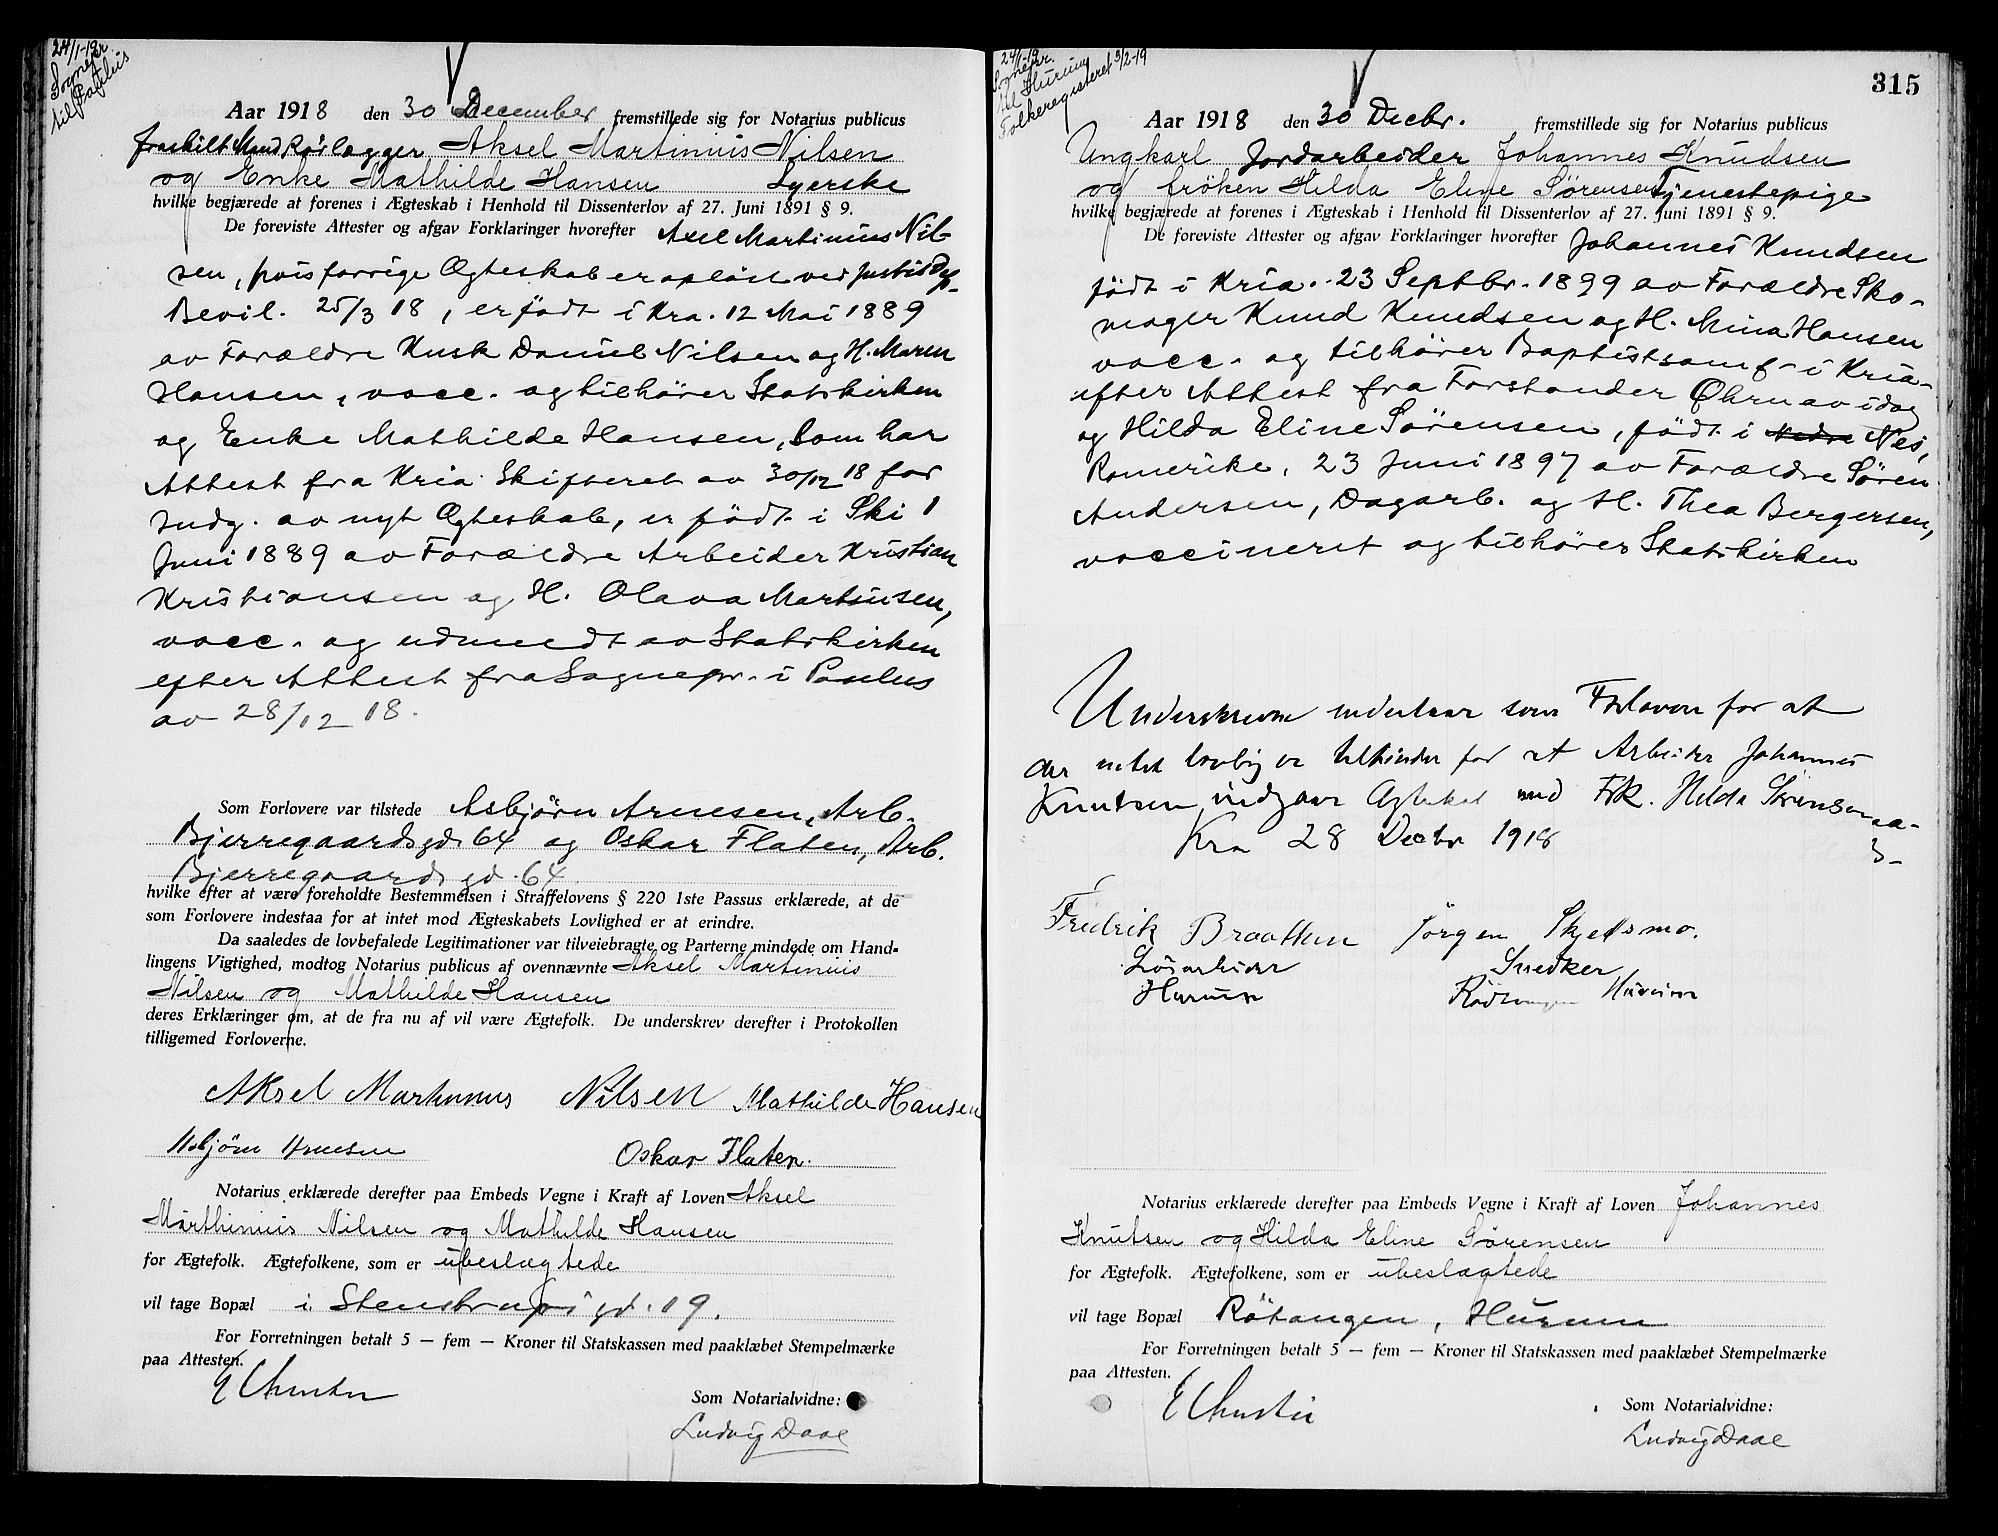 24/1-19
Sognepr.
til Paulus
Aar 1918 den 30 December fremstillede sig for Notarius publicus
fraskilt Mand Rørlægger Aksel Martinius Nilsen
og Enke Mathilde Hansen Syerske
hvilke begjærede at forenes i Ægteskab i Henhold til Dissenterlov af 27. Juni 1891 § 9.
De foreviste Attester og afgav Forklaringer hvorefter Axel Martinius Nil-
sen, hvis forrige Ægteskab er opløst ved Justisdep.
Bevil. 25/3 18, er født i Kra. 12 Mai 1889
av Forældre Kusk Daniel Nilsen og H. Maren
Hansen, vacc. og tilhører Statskirken
og Enke Mathilde Hansen, som har
Attest fra Kria Skifteret av 30/12 18 for
Indg. av nyt Ægteskab, er født i Ski 1
Juni 1889 av Forældre Arbeider Kristian
Kristiansen og H. Olava Martinsen,
vacc. og udmeldt av Statskirken
efter Attest fra Sognepr. i Paulus
av 28/12 18.
Som Forlovere var tilstede Asbjørn Arnesen, Arb.
Bjerregaardsgd. 64 og Oskar Flaten, Arb.
Bjerregaardsgd. 64
hvilke efter at være foreholdte Bestemmelsen i Straffelovens § 220 1ste Passus erklærede, at de
som Forlovere indestaa for at intet mod Ægteskabets Lovlighed er at erindre.
Da saaledes de lovbefalede Legitimationer var tilveiebragte og Parterne mindede om Hand-
lingens Vigtighed, modtog Notarius publicus af ovennævnte Aksel Martinius
Nilsen og Mathilde Hansen
deres Erklæringer om, at de fra nu af vil være Ægtefolk. De underskrev derefter i Protokollen
tilligemed Forloverne.
Aksel Martinius Nilsen Mathilde Hansen
Asbjörn Arnesen Oskar Flaten.
Notarius erklærede derefter paa Embeds Vegne i Kraft af Loven Aksel
Marthinius Nilsen og Mathilde Hansen
for Ægtefolk. Ægtefolkene, som er ubeslægtede
vil tage Bopæl i Stenstrupsgd. 19.
For Forretningen betalt 5 — fem — Kroner til Statskassen med paaklæbet Stempelmærke
paa Attesten.
E Christie
Som Notarialvidne:
Ludvig Daae
24/1-19
Sognepr.
til Hurum
Folkeregisteret 3/2-19
315
Aar 1918 den 30 Decbr. fremstillede sig for Notarius publicus
Ungkarl Jordarbeider Johannes Knudsen
og frøken Hilda Eline Sørensen Tjenestepige
hvilke begjærede at forenes i Ægteskab i Henhold til Dissenterlov af 27. Juni 1891 § 9.
De foreviste Attester og afgav Forklaringer hvorefter Johannes Knudsen
født i Kria. 23 Septbr. 1899 av Forældre Sko-
mager Knud Knudsen og H. Mina Hansen
vacc. og tilhører Baptistsamf. i Kria.
efter Attest fra Forstander Øhrn av idag
og Hilda Eline Sørensen, født i Nedre Nes,
Romerike, 23 Juni 1897 av Forældre Søren
Andersen, Dagarb. og H. Thea Bergersen,
vaccineret og tilhører Statskirken
Underskrevne indestaar som Forlovere for at
der intet lovlig er tilhinder for at Arbeider Johannes
Knutsen indgaar Ægteskab med Frk. Hilda Sörensen
Kra 28 Decbr 1918
Fredrik Braathen Jörgen Skjetsmo.
Lösarbeider Snedker
Hurum Rödtangen Hurum
Notarius erklærede derefter paa Embeds Vegne i Kraft af Loven Johannes
Knutsen og Hilda Eline Sørensen
for Ægtefolk. Ægtefolkene, som er ubeslægtede
vil tage Bopæl Røtangen, Hurum
For Forretningen betalt 5 — fem — Kroner til Statskassen med paaklæbet Stempelmærke
paa Attesten.
E Christie
Som Notarialvidne:
Ludvig Daae